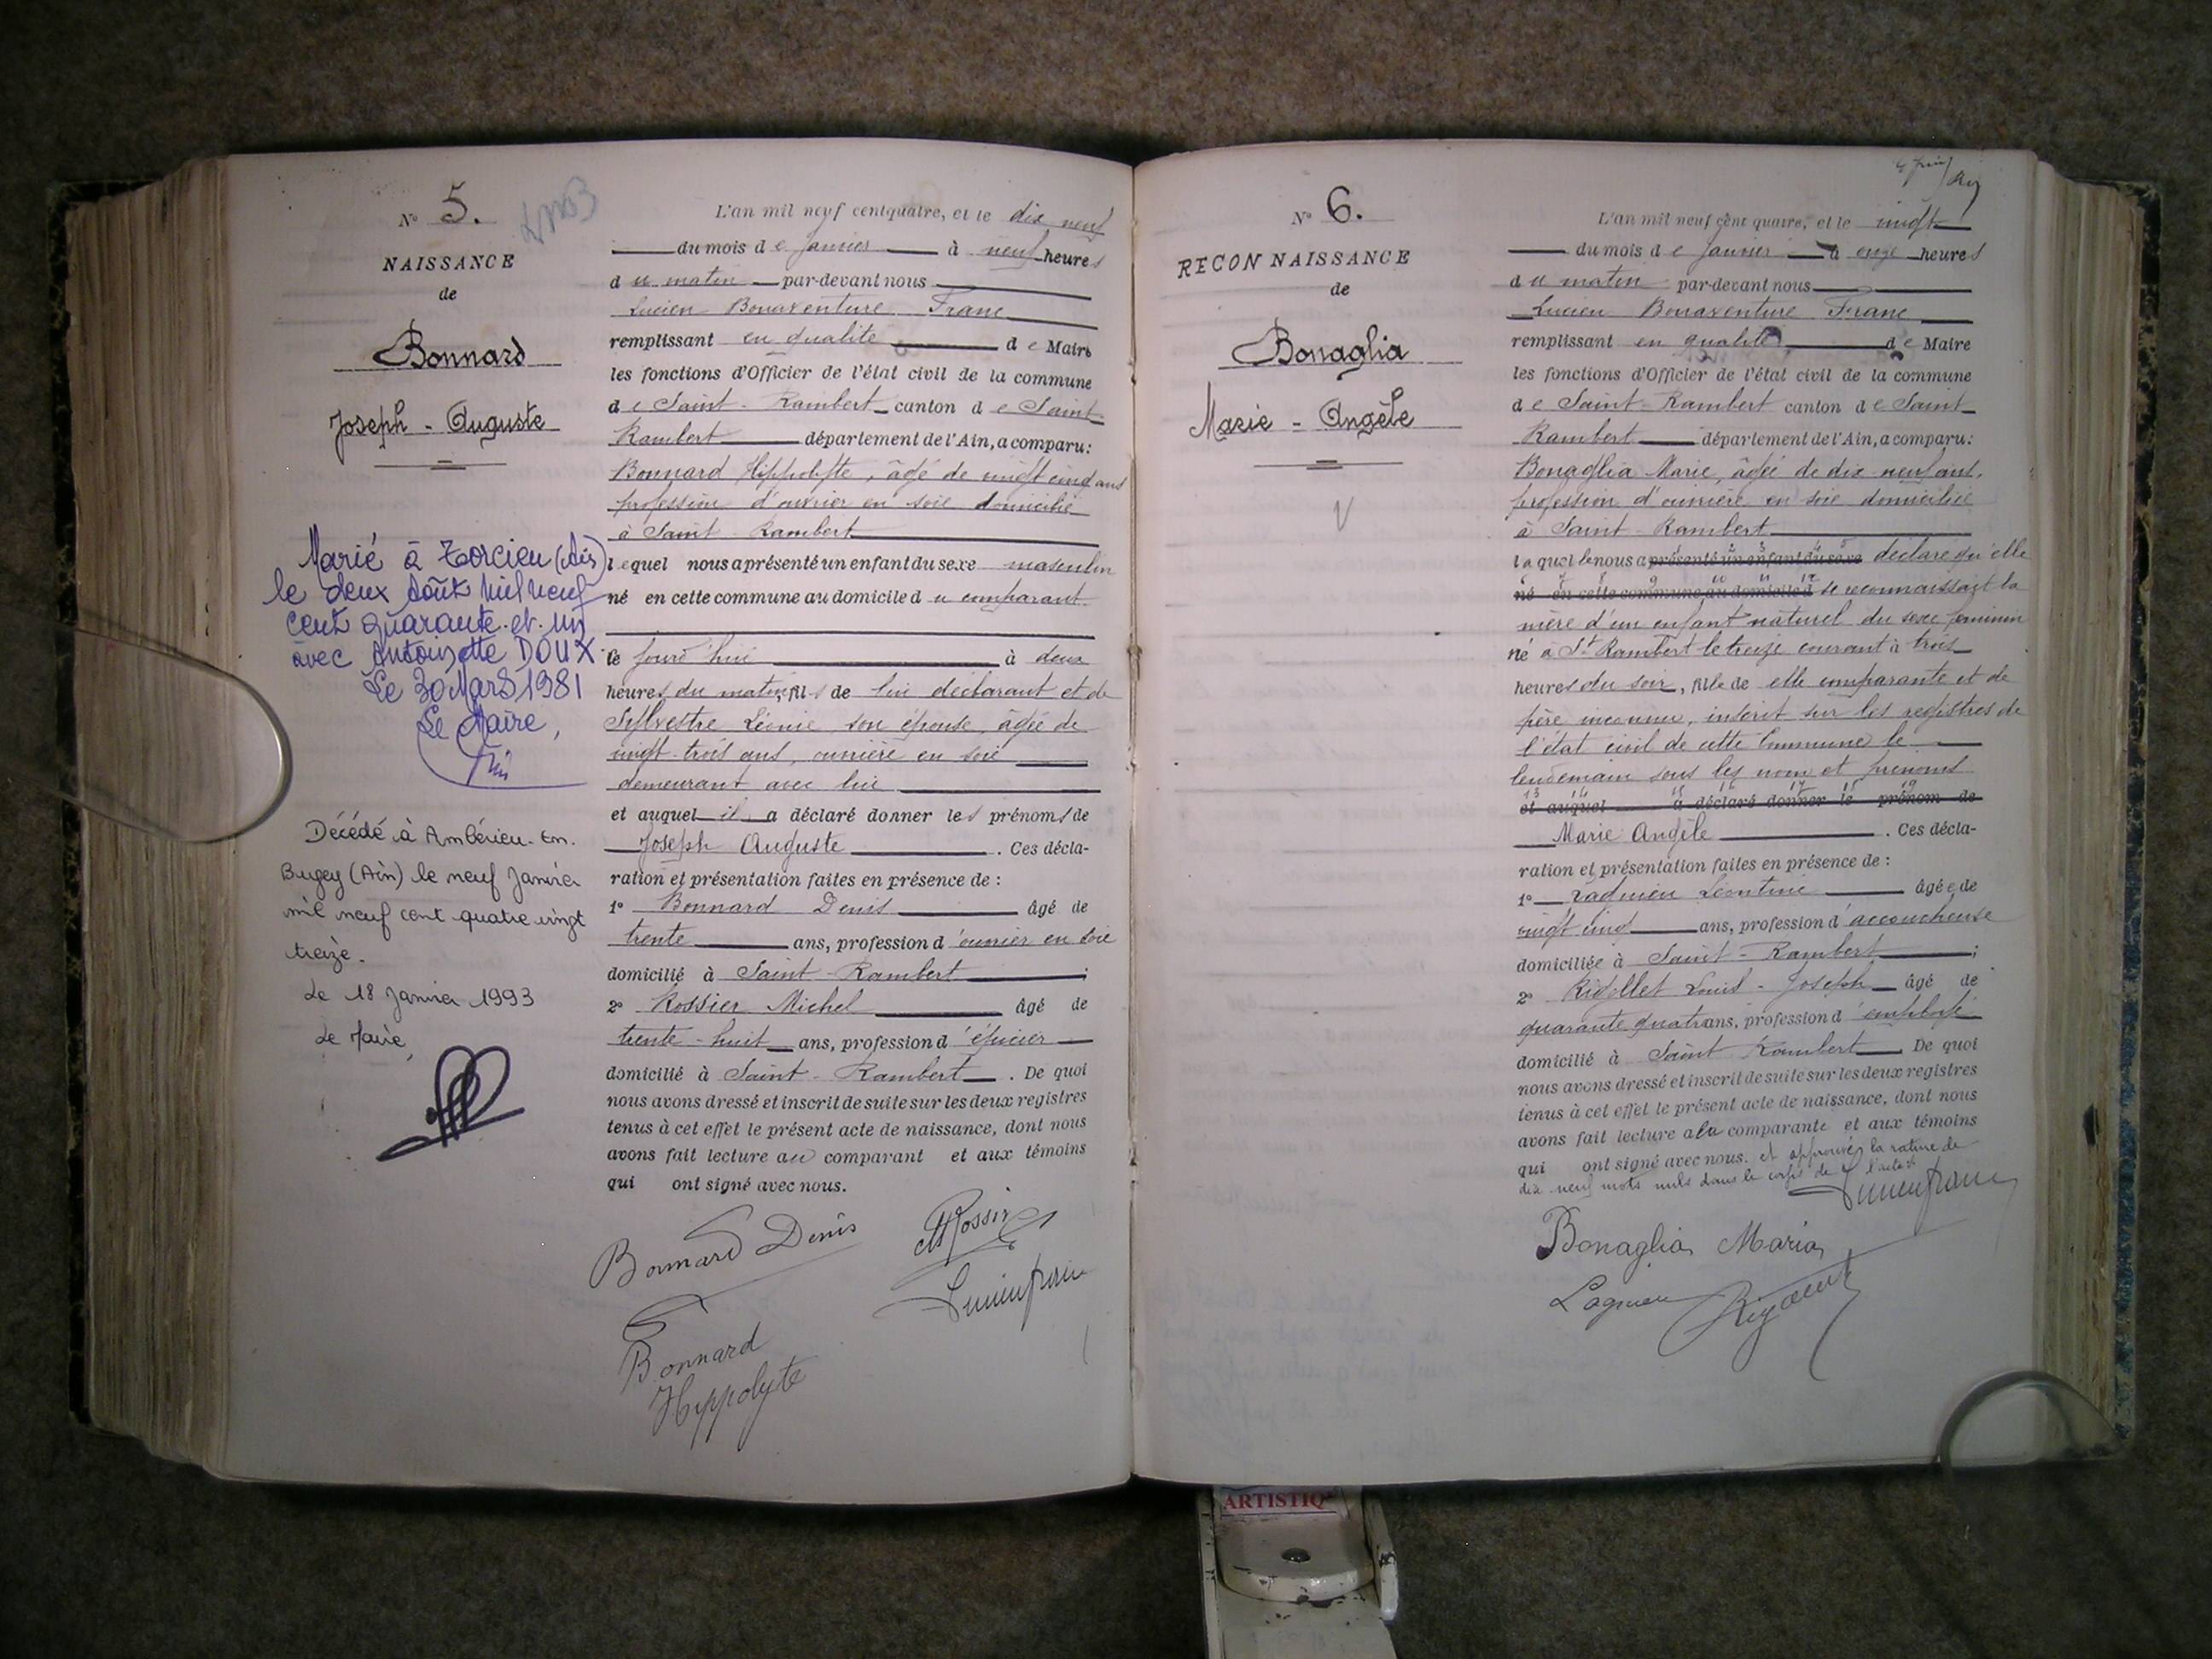 N° 5.
NAISSANCE
de
Bonnard
Joseph - Auguste
Marié à Torcieu (Ain)
le deux Août mil neuf
cent quarante et un
avec Antoinette DOUX
Le 30 Mars 1981
Le Maire,
Décédé à Ambérieu-en-
Bugey (Ain) le neuf Janvier
mil neuf cent quatre vingt
treize.
Le 18 Janvier 1993
Le Maire,
L'an mil neuf cent quatre, et le dix neuf
du mois de Janvier à neuf heures
du matin par-devant nous
Lucien Bonaventure Franc
remplissant en qualité de Maire
les fonctions d'Officier de l'état civil de la commune
de Saint-Rambert canton de Saint-
Rambert département de l'Ain, a comparu:
Bonnard Hippolyte, âgé de vingt cinq ans
profession d'ouvrier en soie domicilié
à Saint-Rambert
lequel nous a présenté un enfant du sexe masculin
né en cette commune au domicile du comparant
le jourd'hui à deux
heures du matin, fils de lui déclarant et de
Sylvestre Léonie son épouse, âgée de
vingt-trois ans, ouvrière en soie
demeurant avec lui
et auquel il a déclaré donner les prénoms de
Joseph Auguste. Ces décla-
ration et présentation faites en présence de :
1° Bonnard Denis âgé de
trente ans, profession d'ouvrier en soie
domicilié à Saint-Rambert ;
2° Rossier Michel âgé de
trente-huit ans, profession d'épicier
domicilié à Saint-Rambert. De quoi
nous avons dressé et inscrit de suite sur les deux registres
tenus à cet effet le présent acte de naissance, dont nous
avons fait lecture au comparant et aux témoins
qui ont signé avec nous.
Bonnard Denis
Bonnard
Hippolyte
N° 6.
RECONNAISSANCE
de
Bonaglia
Marie - Angèle
L'an mil neuf cent quatre, et le vingt
du mois de Janvier à onze heures
du matin par-devant nous
Lucien Bonaventure Franc
remplissant en qualité de Maire
les fonctions d'Officier de l'état civil de la commune
de Saint-Rambert canton de Saint-
Rambert département de l'Ain, a comparu:
Bonaglia Marie, âgée de dix neuf ans,
profession d'ouvrière en soie domiciliée
à Saint-Rambert
laquelle nous a présenté un enfant du sexe déclaré qu'elle
né en cette commune au domicile d se reconnaissait la
mère d'un enfant naturel du sexe féminin
né à St Rambert le treize courant à trois
heures du soir, fille de elle comparante et de
père inconnu, inscrit sur les registres de
l'état civil de cette Commune le
lendemain sous les nom et prénoms
et auquel a déclaré donner le prénom de
Marie Angèle. Ces décla-
ration et présentation faites en présence de :
1° Lagnieu Léontine âgée de
vingt cinq ans, profession d'accoucheuse
domiciliée à Saint-Rambert ;
2° Louis-Joseph âgé de
quarante quatre ans, profession d'employé
domicilié à Saint Rambert. De quoi
nous avons dressé et inscrit de suite sur les deux registres
tenus à cet effet le présent acte de naissance, dont nous
avons fait lecture à la comparante et aux témoins
qui ont signé avec nous. et approuvé la rature de
dix neuf mots nuls dans le corps de l'acte
Bonaglia Maria
Lagnieu
ARTISTIQ